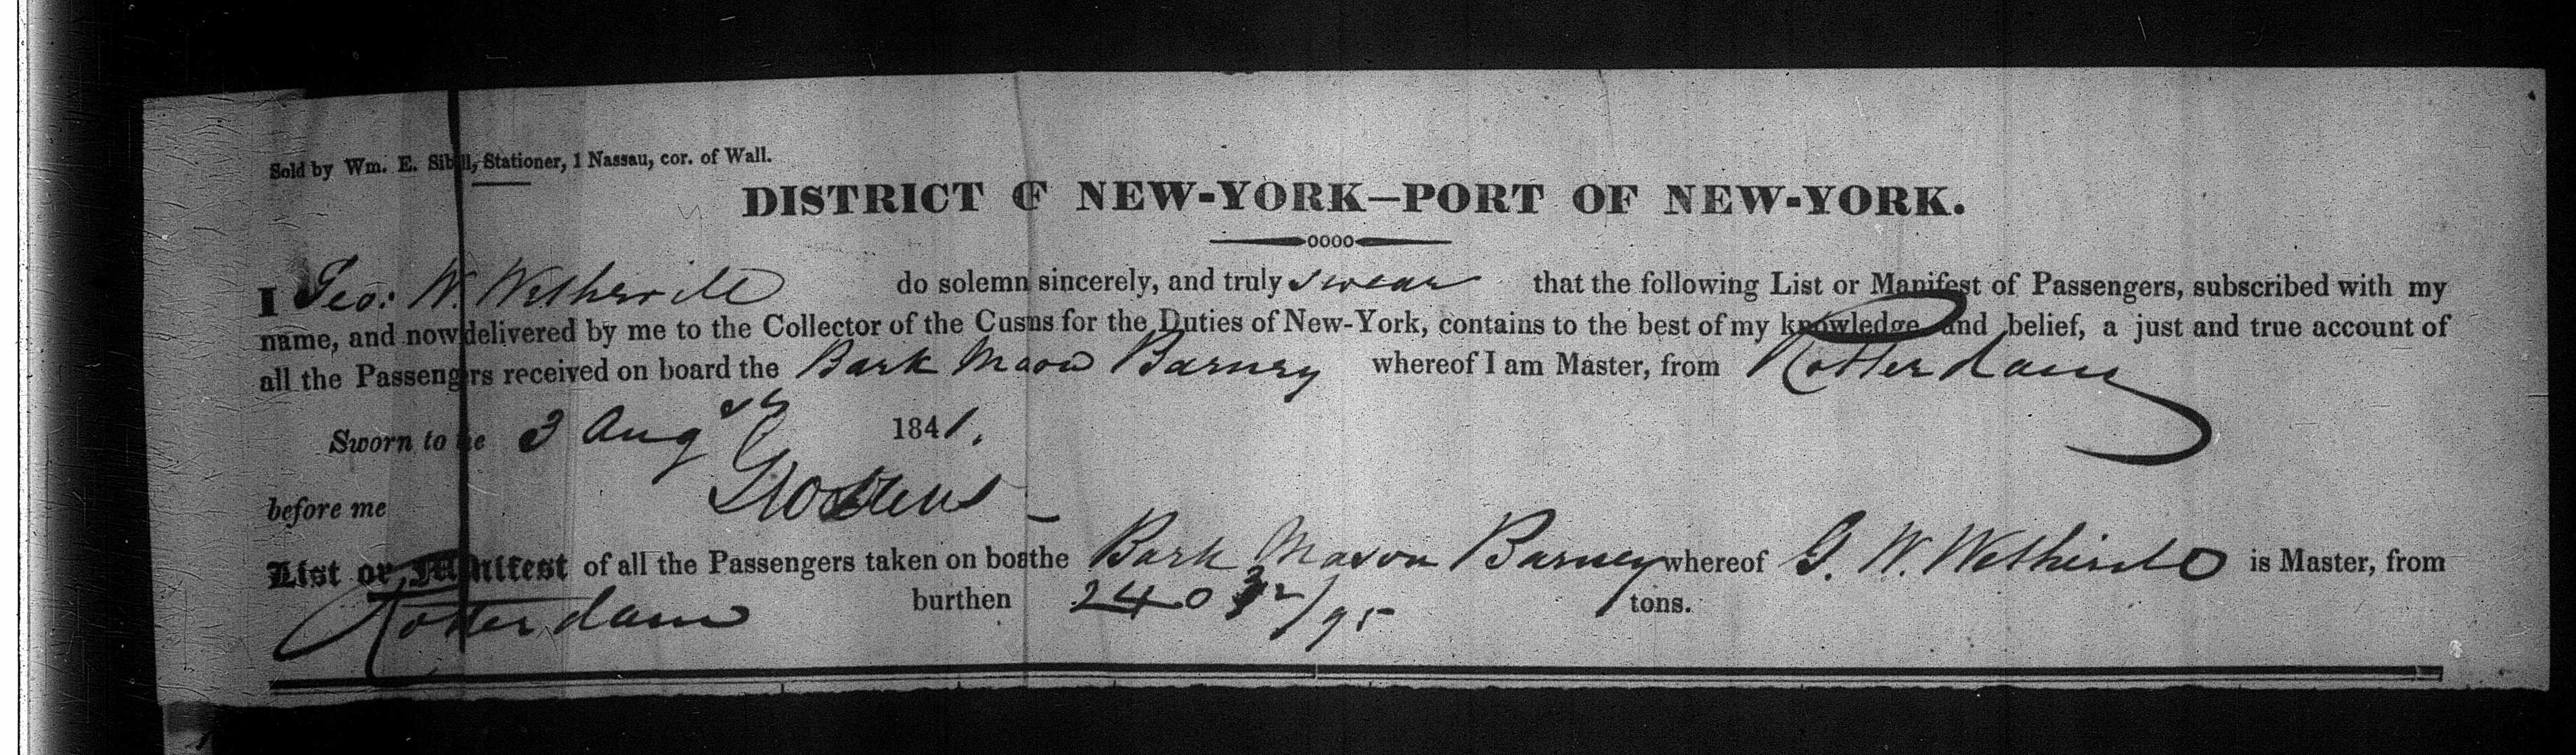 Sold by Wm. E. Sibell, Stationer, 1 Nassau, cor. of Wall.
DISTRICT OF NEW-YORK—PORT OF NEW-YORK.
I Geo: W. Wetherill do solemn sincerely, and truly swear that the following List or Manifest of Passengers, subscribed with my
name, and now delivered by me to the Collector of the Cusns for the Duties of New-York, contains to the best of my knowledge and belief, a just and true account of
all the Passengrs received on board the Bark Mason Barney whereof I am Master, from Rotterdam
Sworn to he 3 Aug 1841.
before me
List or Manifest of all the Passengers taken on boathe Bark Mason Barney whereof G. W. Wetherill is Master, from
Rotterdam burthen 240 32/95 tons.